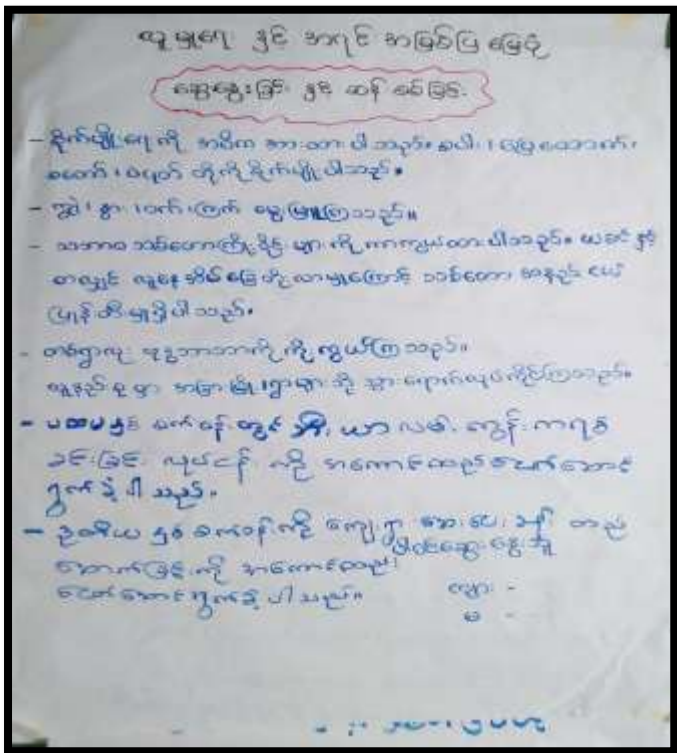 လူမှုရေး နှင့် အရင်းအမြစ်ပြ မြေပုံ
ဆွေးနွေးခြင်း နှင့် ဆန်းစစ်ခြင်း
- စိုက်ပျိုးရေးကို အဓိက ထားပါသည်။ စပါး၊ မြေထောက်၊
စိုက်ပျိုးပါသည်။
- ကျွဲ၊ နွား၊ ဝက်၊ ကြက် မွေးမြူကြသည်။
- သဘာဝ သစ်တောကြိုးဝိုင်းများကို ကာကွယ်ထားပါသည်။ ယခင်နှင့်
လူနေအိမ်ခြေ တိုးလာမှုကြောင့် သစ်တော အနည်းငယ်
ပြုန်းတီးမှုရှိပါသည်။
- တစ်ရွာလုံး ဗုဒ္ဓဘာသာကို ကိုးကွယ်ကြသည်။
လူနည်းစုမှာ အခြားမြို့ရွာများသို့ သွားရောက်လုပ်ကိုင်ကြသည်။
- ပထမနှစ် စက်ဝန်းတွင် ယာလမ်း ကွန်ကရစ်
ခင်းခြင်း လုပ်ငန်းကို အကောင်အထည်ဖော်ဆောင်
ရွက်ခဲ့ပါသည်။
- ဒုတိယနှစ် စက်ဝန်းကို ကျေးရွာ ဆေးပေးခန်း တည်
ဆောက်ခြင်းကို အကောင်အထည်
ပါဝင်ဆွေးနွေးသူ
ဖော်ဆောင်ရွက်ခဲ့ပါသည်။
ကျား -
မ -